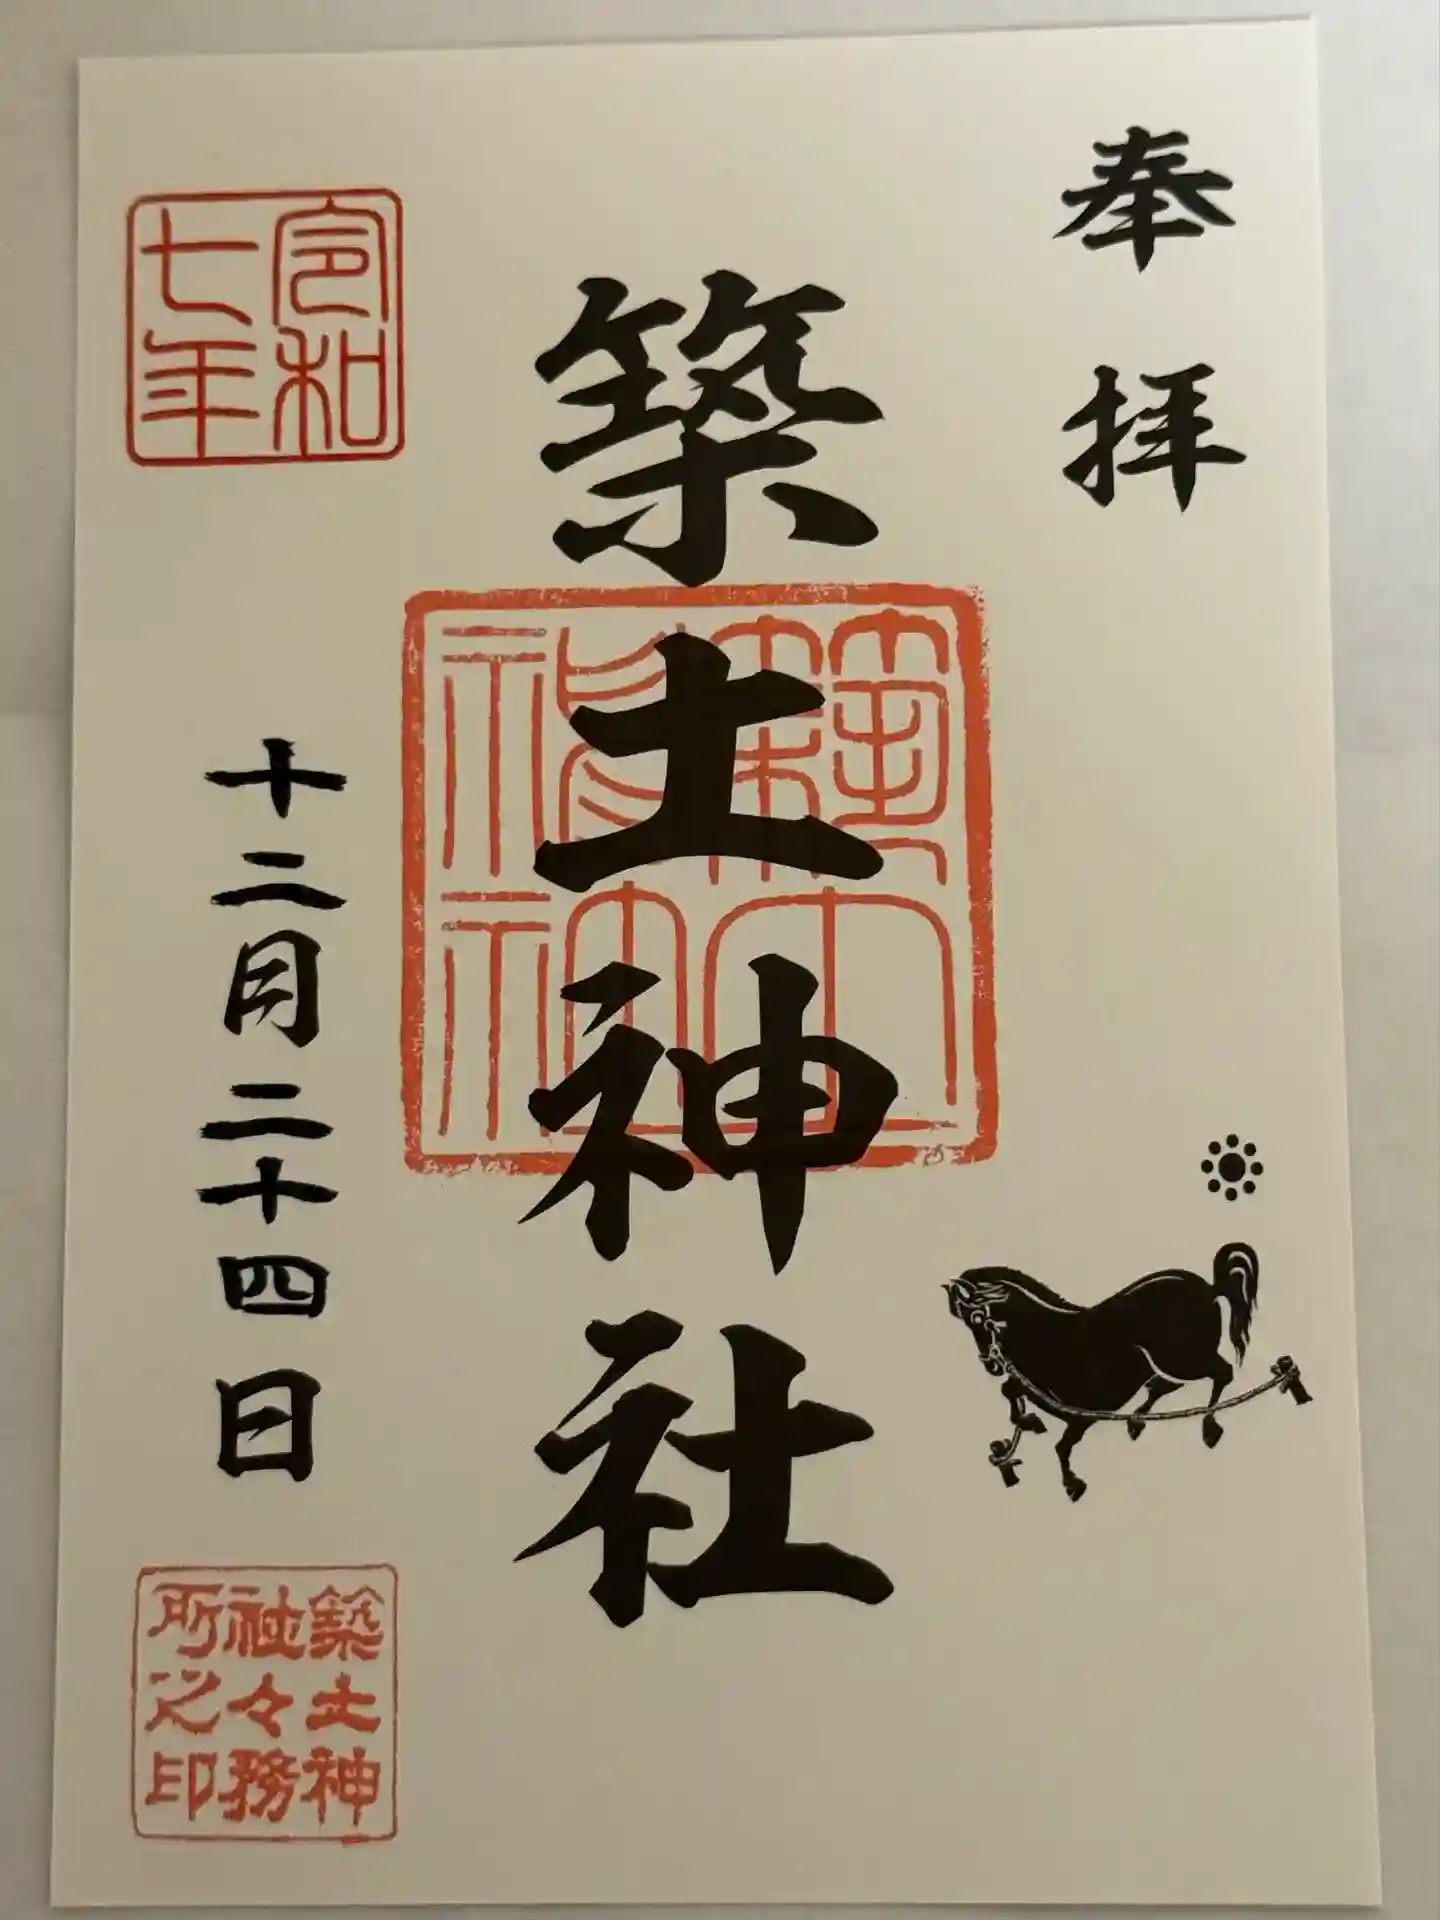 奉拝
築土神社
令和
七年
十二月二十四日
築土神
社々務
所之印